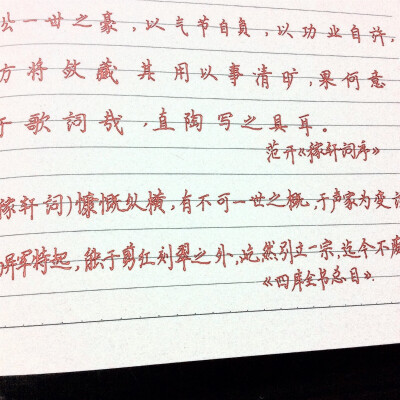 公一世之豪，以气节自负，以功业自许，
方将敛藏其用以事清旷，果何意
于歌词哉，直陶写之具耳。
范开《稼轩词序》
稼轩词）慷慨纵横，有不可一世之概，于声家为变
异军特起，能于剪红刻翠之外，屹然别立一宗，迄今不
《四库全书总目》